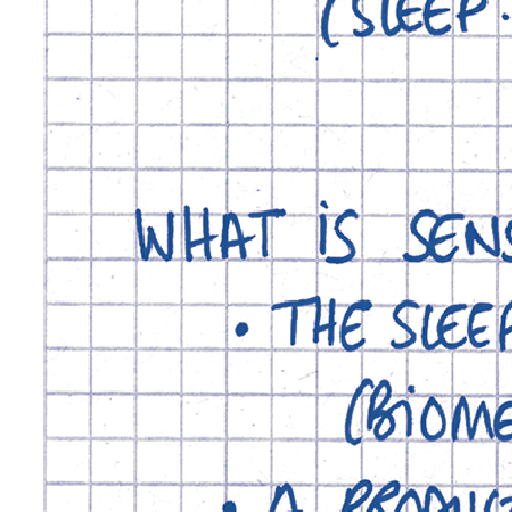 (SLEEP.
WHAT iS SENS
• THE SLEEP
(BiOME
• A PRODUC